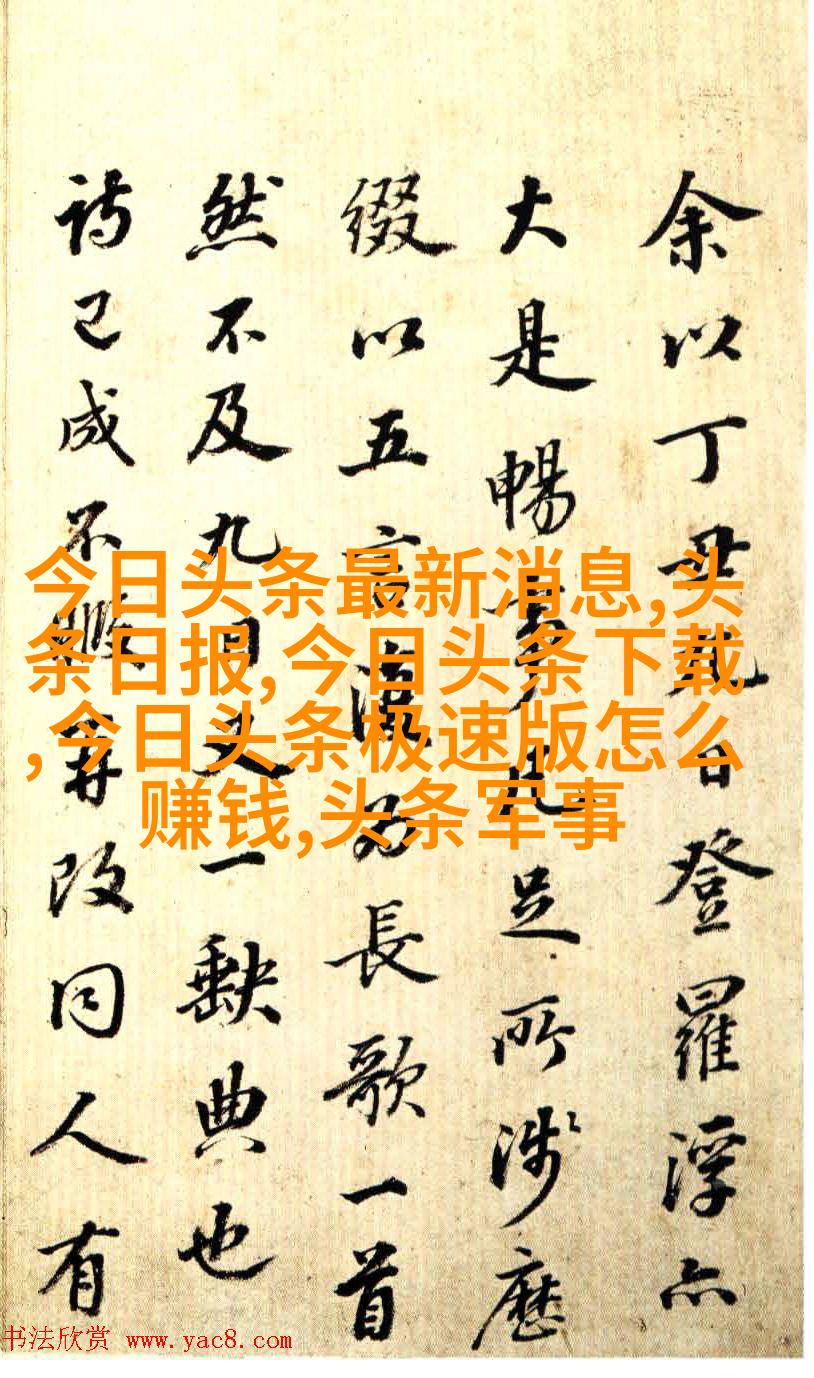 余以丁丑九日登羅浮亦
大是暢事凡足所涉歷
綴以五言為長歌一首
然不及九日又一缺典也
詩已成不暇再改同人有
今日头条最新消息,头
条日报,今日头条下载
,今日头条极速版怎么
赚钱,头条军事
书法欣赏 www.yac8.com